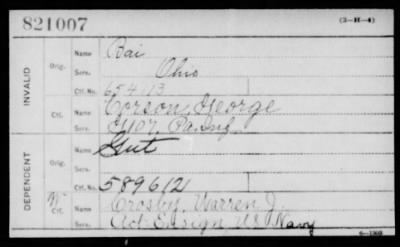 821007 (3-H-4)
INVALID
Orig. Name Bai
Serv. Ohio
Ctf. No. 654113
Ctf. Name Corson, George
Serv. C, 107, Pa. Inf.
DEPENDENT
Orig. Name Gut
Serv.
Ctf. No. 589612
W Ctf. Name Crosby, Warren J.
Serv. Act. Ensign, U.S. Navy